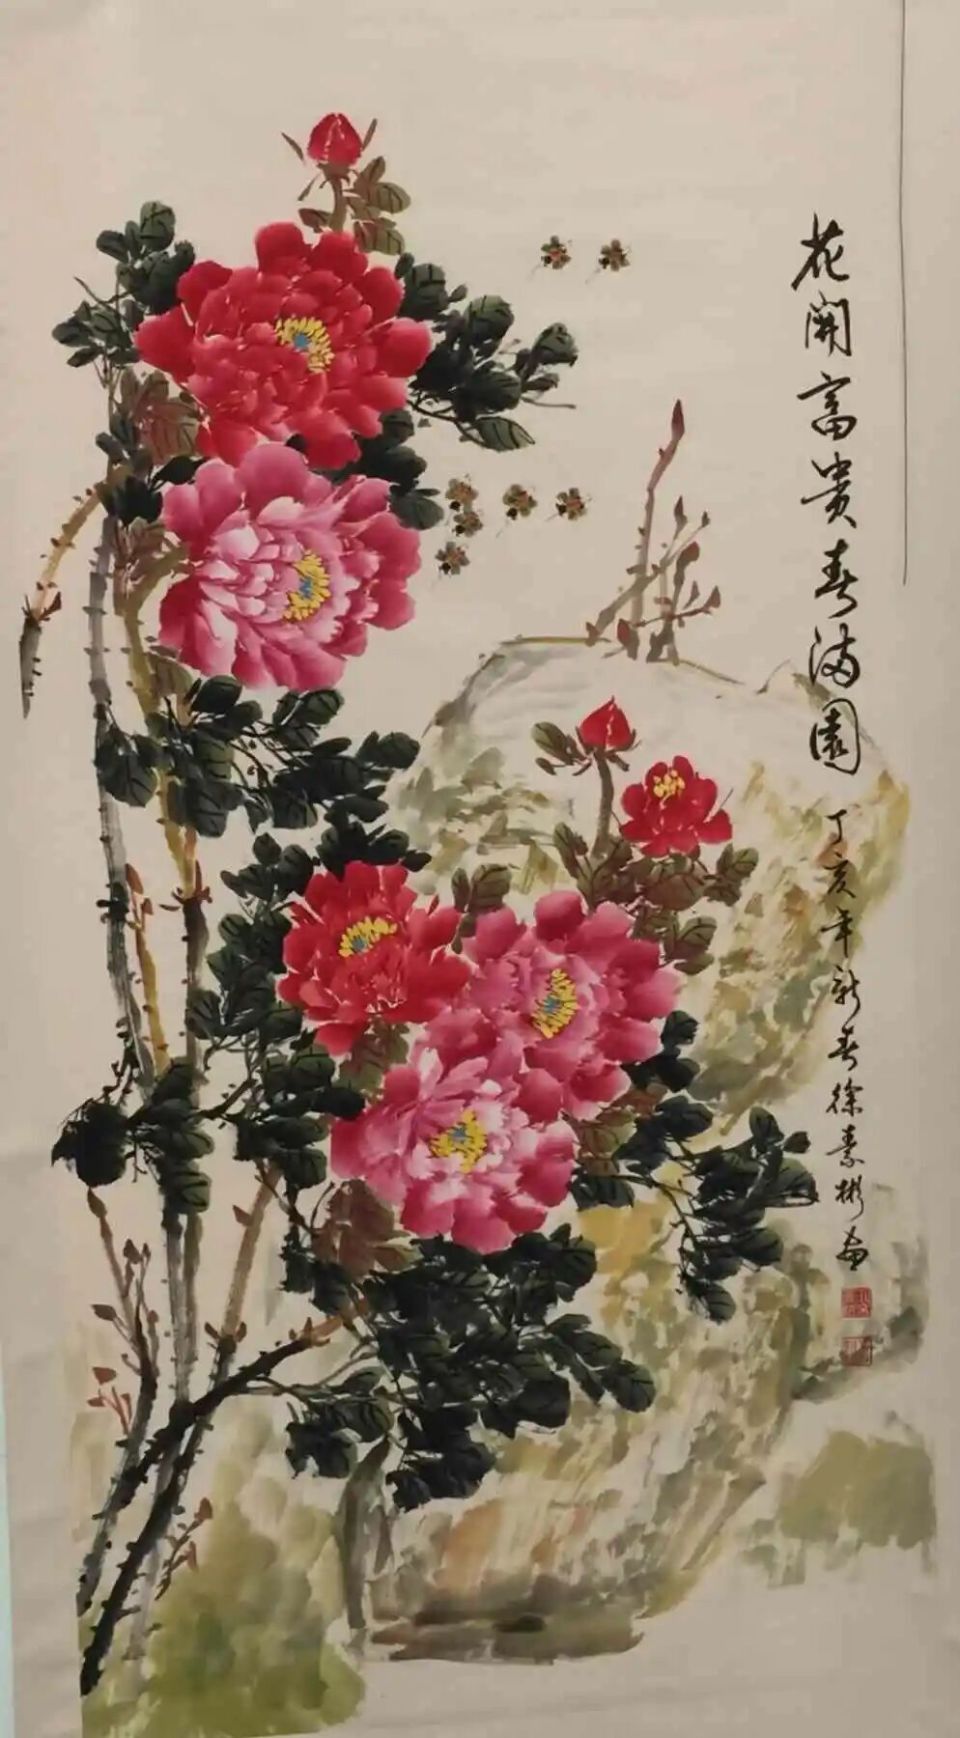 花開富贵春满園
丁亥年新春徐素彬畵